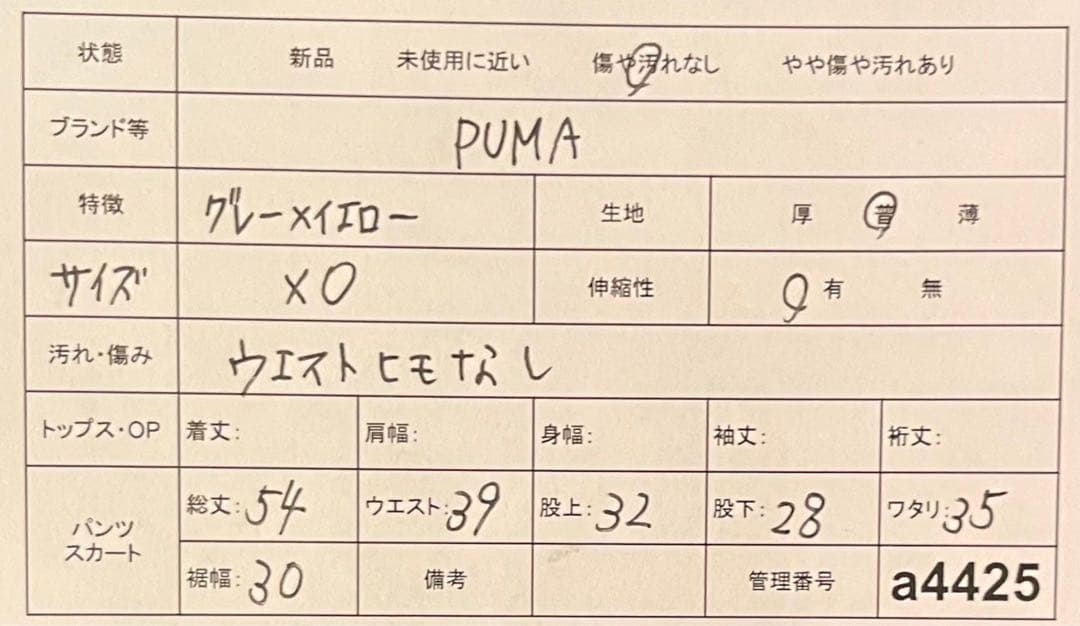 状態 新品 未使用に近い 傷や汚れなし やや傷や汚れあり
ブランド等 PUMA
特徴 グレー×イエロー 生地 厚 普 薄
サイズ XO 伸縮性 有 無
汚れ・傷み ウエストヒモなし
トップス・OP 着丈: 肩幅: 身幅: 袖丈: 裄丈:
パンツ
スカート
総丈:54 ウエスト:39 股上:32 股下:28 ワタリ:35
裾幅:30 備考 管理番号 a4425